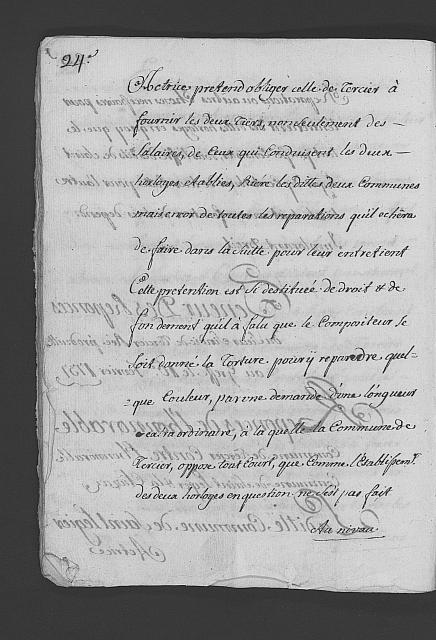 24.
Actrice pretend obliger celle de Tercier à
fournir les deux Tiers, non seulement des
Salaires, de Ceux qui Conduisent les deux
horloges établies, Riere les dittes deux Communes
mais encor de toutes les reparations qu'il echera
de faire dans la Suitte pour leur entretient
Cette pretention est Si destituée de droit & de
fondement qu'il a falu que le Compositeur se
soit donné la Torture pour y repandre quel-
-que Couleur, par une demande d'une longueur
extraordinaire, à la quelle la Commune de
Tercier, oppose Tout Court, que Comme l'Etablissemt.
des deux horloges en question ne s'est pas fait
Au niveau